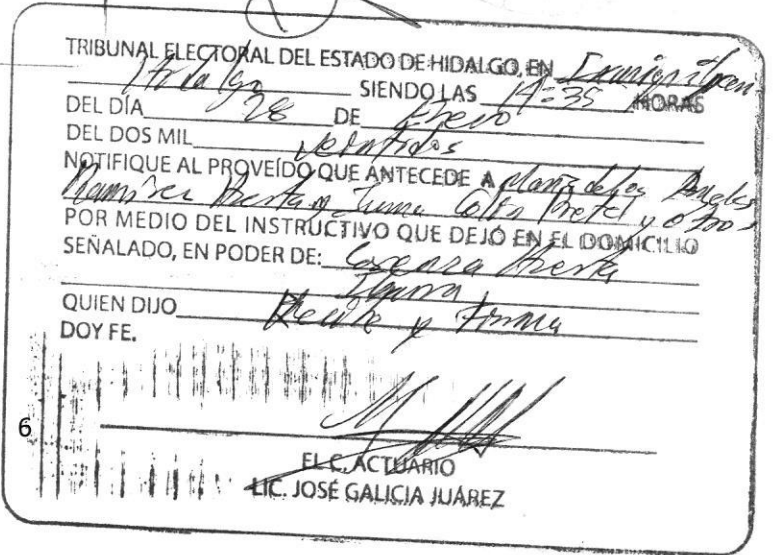 TRIBUNAL ELECTORAL DEL ESTADO DE HIDALGO, EN Ixmiquilpan
Hidalgo SIENDO LAS 14:35 HORAS
DEL DÍA 28 DE Enero
DEL DOS MIL veintidos
NOTIFIQUE AL PROVEÍDO QUE ANTECEDE A Maria de los Angeles
Ramirez y otros
POR MEDIO DEL INSTRUCTIVO QUE DEJÓ EN EL DOMICILIO
SEÑALADO, EN PODER DE:
QUIEN DIJO Recibe y Firma
DOY FE.
6
EL C. ACTUARIO
LIC. JOSÉ GALICIA JUÁREZ